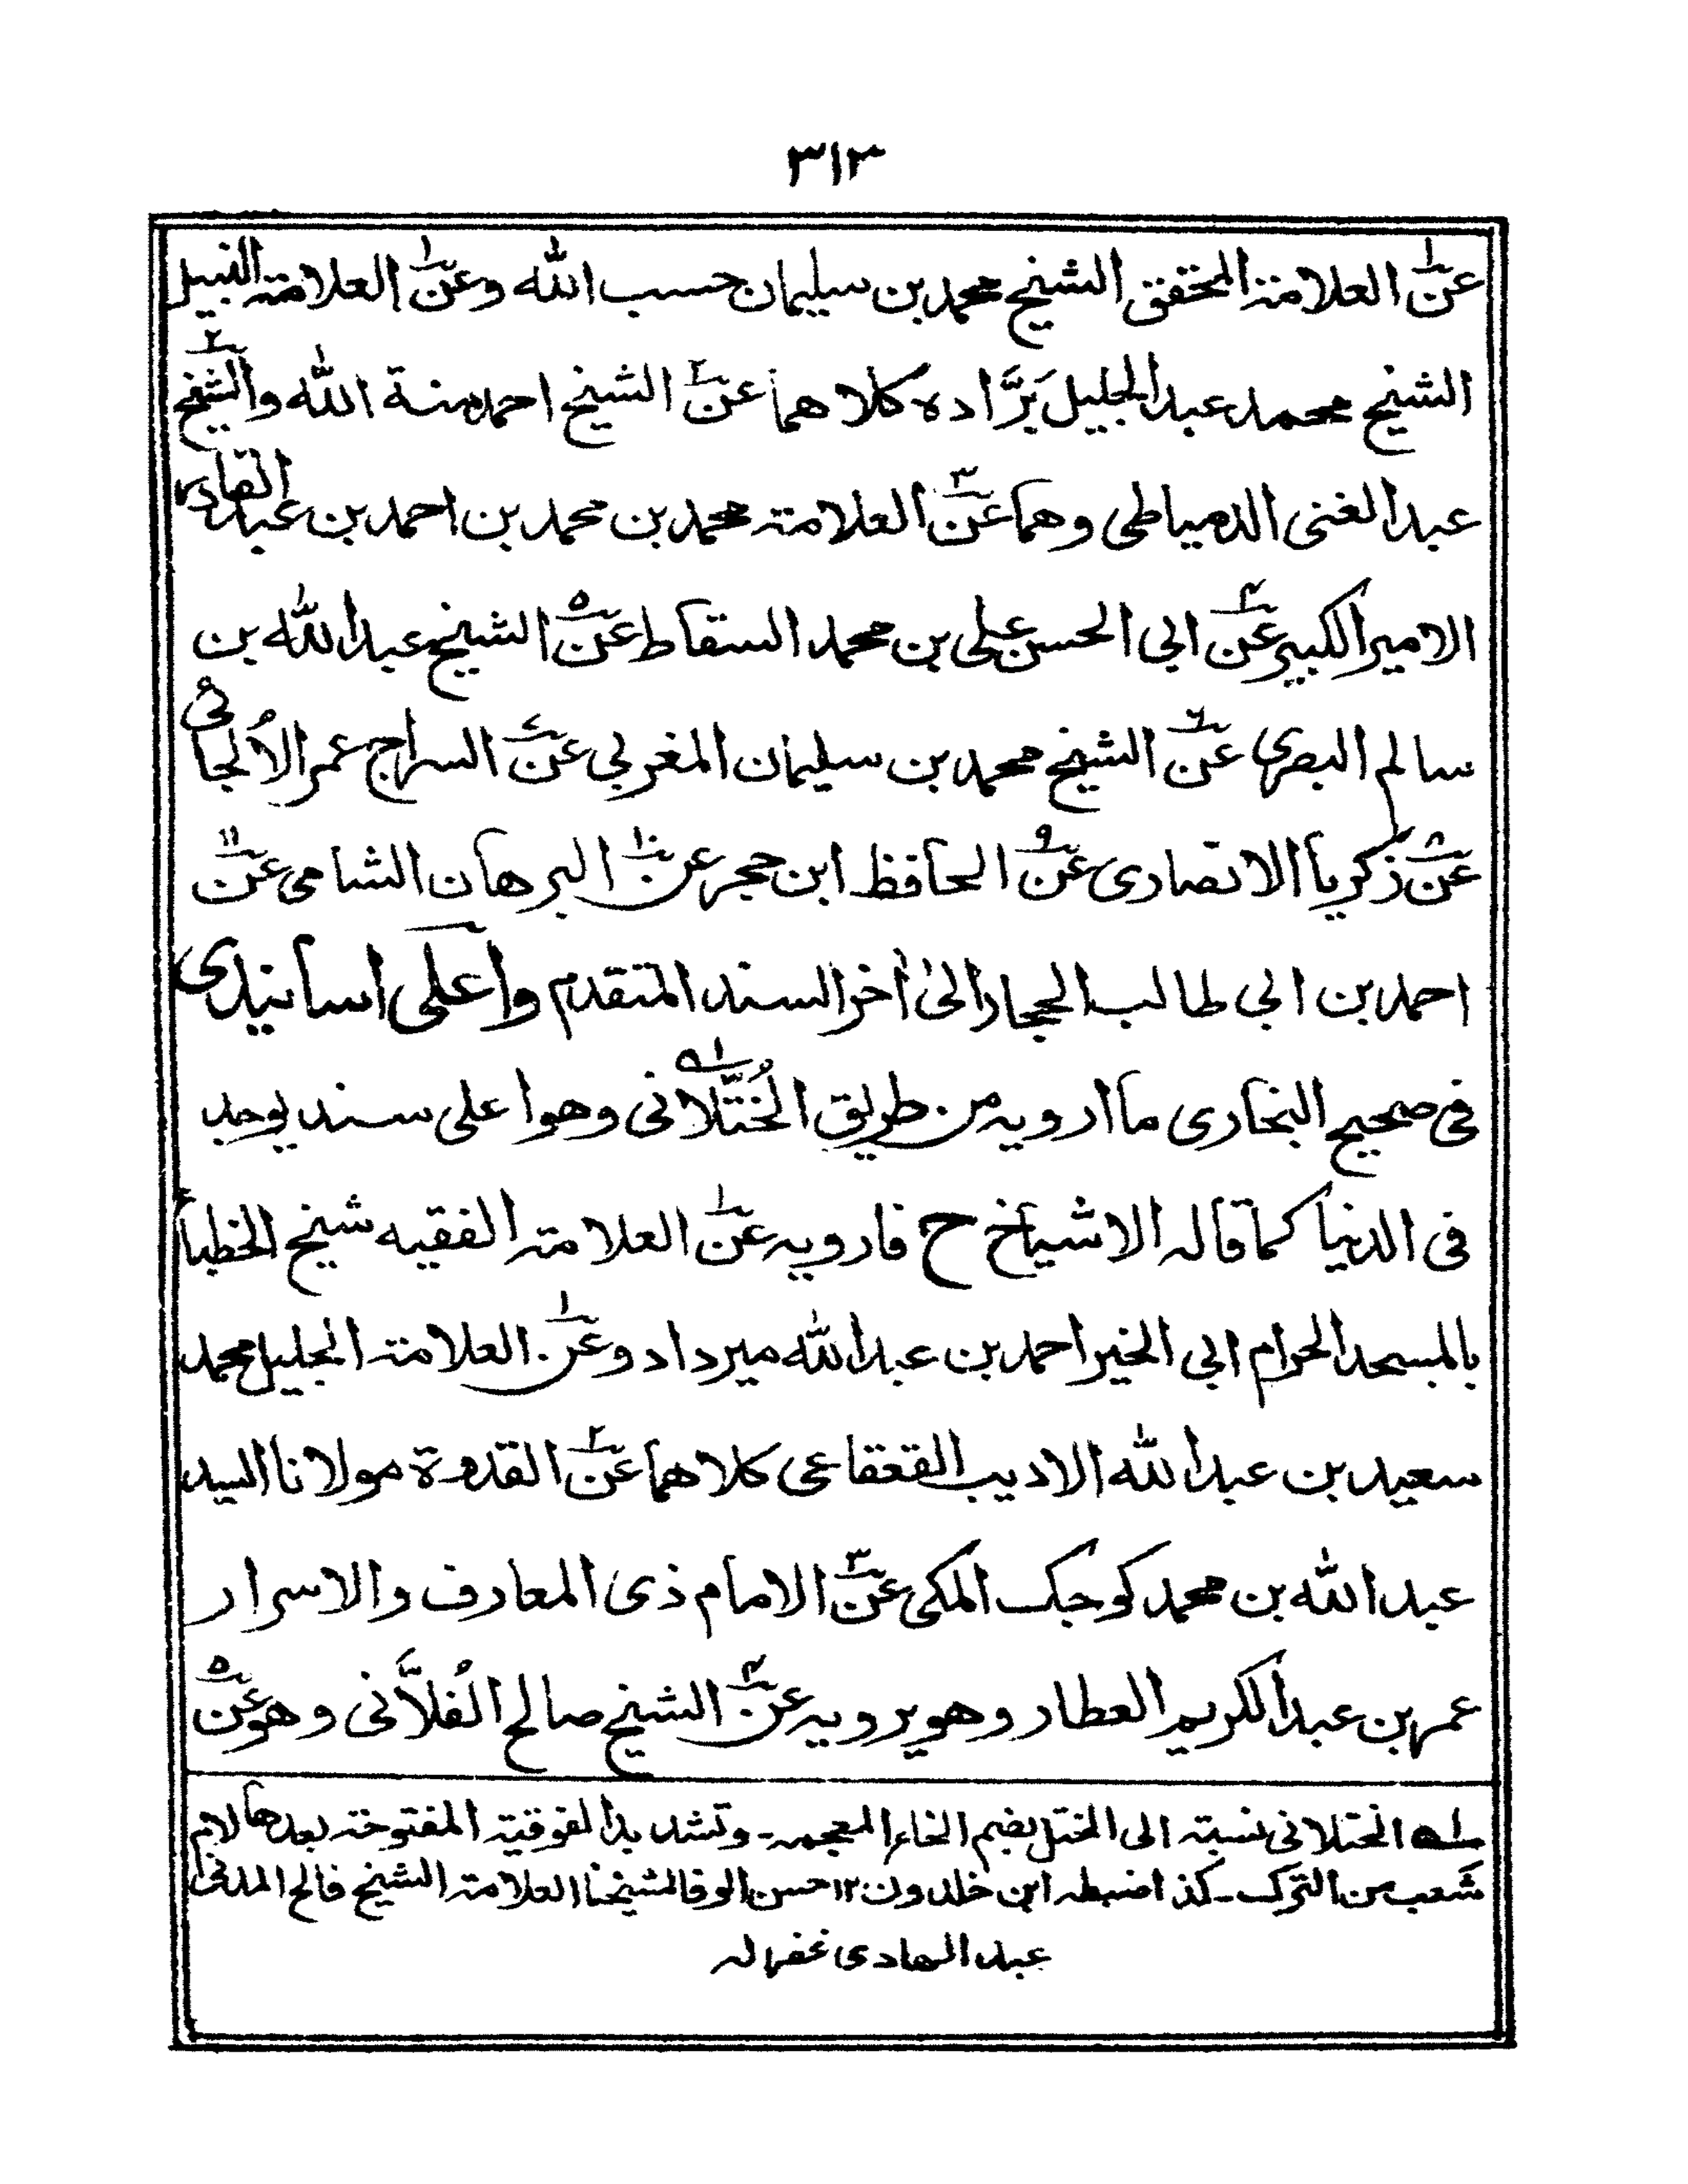 ٣١٣
عن١ العلامة المحقق الشيخ محمد بن سليمان حسب الله وعن١ العلامة النبيل
الشيخ محمد عبد الجليل بَرَّاده كلاهما عن٢ الشيخ احمد منة الله والشيخ٢
عبد الغنى الدمياطى وهما عن٣ العلامة محمد بن محمد بن احمد بن عبد القادر
الامير الكبير عن٤ ابى الحسن على بن محمد السقاط عن٥ الشيخ عبد الله بن
سالم البصرى عن٦ الشيخ محمد بن سليمان المغربى عن٧ السراج عمر الاُلجائى
عن٨ زكريا الانصارى عن٩ الحافظ ابن حجر عن١٠ البرهان الشامى عن١١
احمد بن ابى طالب الحجار الىٰ اٰخر السند المتقدم واعلى اسانيدى
فى صحيح البخارى ما ارويه من طريق الخُتَّلانى١ـه وهو اعلى سند يوجد
فى الدنيا كما قاله الاشياخ ح فارويه عن١ العلامة الفقيه شيخ الخطباء
بالمسجد الحرام ابى الخير احمد بن عبد الله ميرداد وعن١ العلامة الجليل محمد
سعيد بن عبد الله الاديب القعقاعى كلاهما عن٢ القدوة مولانا السيد
عبد الله بن محمد كوجك المكى عن٣ الامام ذى المعارف والاسرار
عمر بن عبد الكريم العطار وهو يرويه عن٤ الشيخ صالح الفُلَّانى وهو عن٥
١ـه الختلانى نسبة الى الختل بضم الخاء المعجمه ـ وتشديد الفوقية المفتوحة بعدها لام
شَعب من الترك ـ كذا ضبطه ابن خلدون ١٢ حسن الوفا لشيخنا العلامة الشيخ فالح المدنى
عبد الهادى غفر له